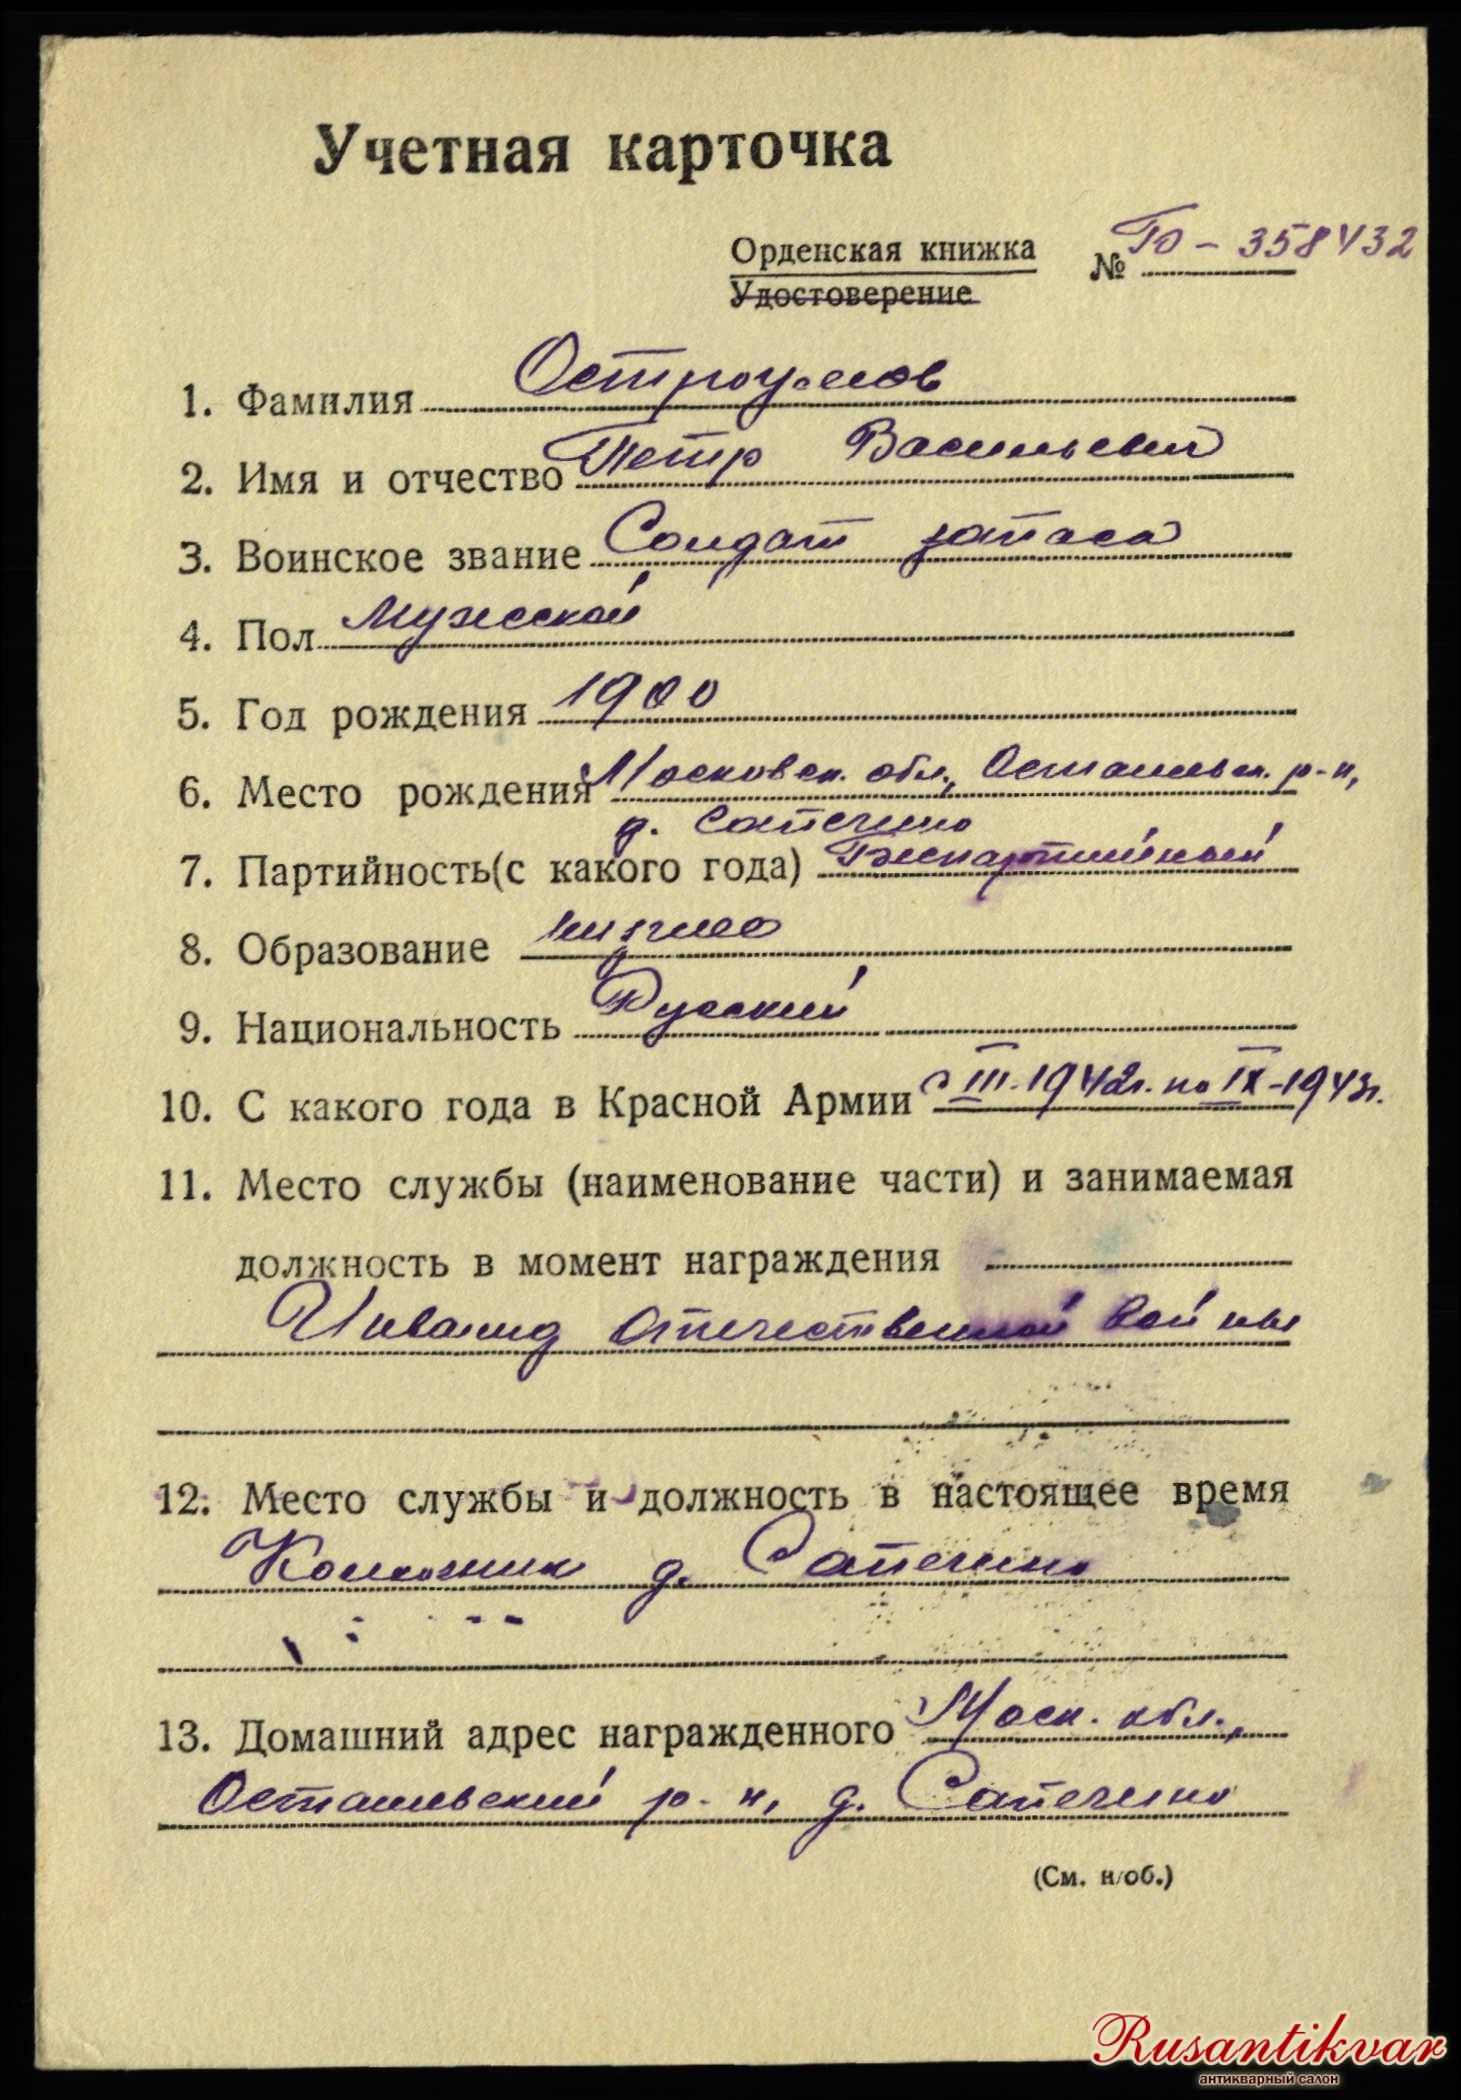 Учетная карточка
Орденская книжка № Б - 358432
Удостоверение
1. Фамилия Остроумов
2. Имя и отчество Петр Васильевич
3. Воинское звание Солдат запаса
4. Пол Мужской
5. Год рождения 1900
6. Место рождения Московск. обл., Осташевск. р-н,
д. Сапегино
7. Партийность(с какого года) Беспартийный
8. Образование низшее
9. Национальность Русский
10. С какого года в Красной Армии с III-1942г. по IX-1943г.
11. Место службы (наименование части) и занимаемая
должность в момент награждения
Инвалид Отечественной войны
12. Место службы и должность в настоящее время
Колхозник д. Сапегино
13. Домашний адрес награжденного Моск. обл.,
Осташевский р-н, д. Сапегино
(См. н/об.)
Rusantikvar
антикварный салон